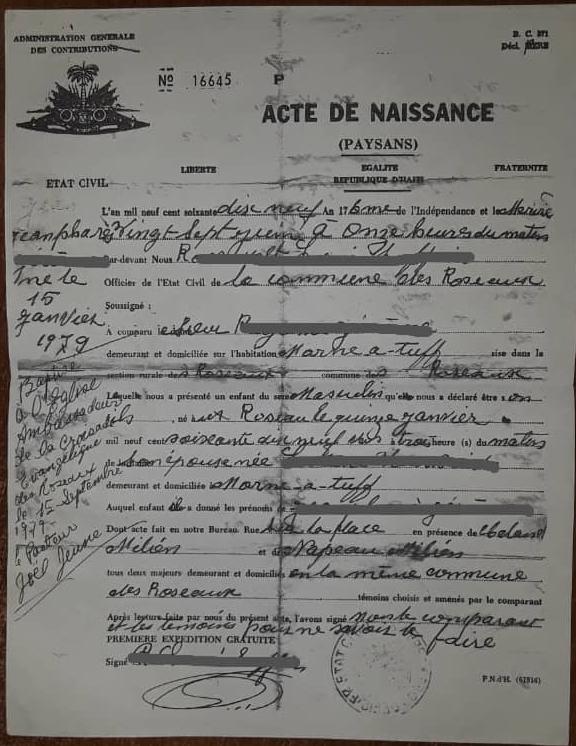 ADMINISTRATION GENERALE
DES CONTRIBUTIONS
D. C. 371
No 16645 P
ACTE DE NAISSANCE
(PAYSANS)
LIBERTE EGALITE FRATERNITE
REPUBLIQUE D'HAITI
ETAT CIVIL
L'an mil neuf cent soixante dix neuf An 176me de l'Indépendance et le
Vingt Sept juin à onze heures du matin
Par-devant Nous
Officier de l'Etat Civil de la commune des Roseaux
Soussigné :
A comparu le sieur
demeurant et domiciliée sur l'habitation Morne-a-tuff sise dans la
section rurale des Roseaux commune des Roseaux
Laquelle nous a présenté un enfant du sexe Masculin qu'elle nous a déclaré être son
né aux Roseaux le quinze janvier
mil neuf cent soixante dix neuf à trois heure (s) du matin
son épouse née
demeurant et domiciliée Morne-a-tuff
Auquel enfant il a donné les prénoms de
Dont acte fait en notre Bureau Rue de la place en présence de
Milien et de Napeau Milien
tous deux majeurs demeurant et domiciliés en la même commune
des Roseaux témoins choisis et amenés par le comparant
Après lecture fait par nous du présent acte, l'avons signé non le comparant
et les témoins pour ne savoir le faire
PREMIERE EXPEDITION GRATUITE
Signé
P.N.d'H.
né le
15
janvier
1979
Baptisé
à l'Eglise
Ambassadeur
de la Croisade
Evangélique
des Roseaux
le 15 Septembre
1979
le Pasteur
Joël Jeune